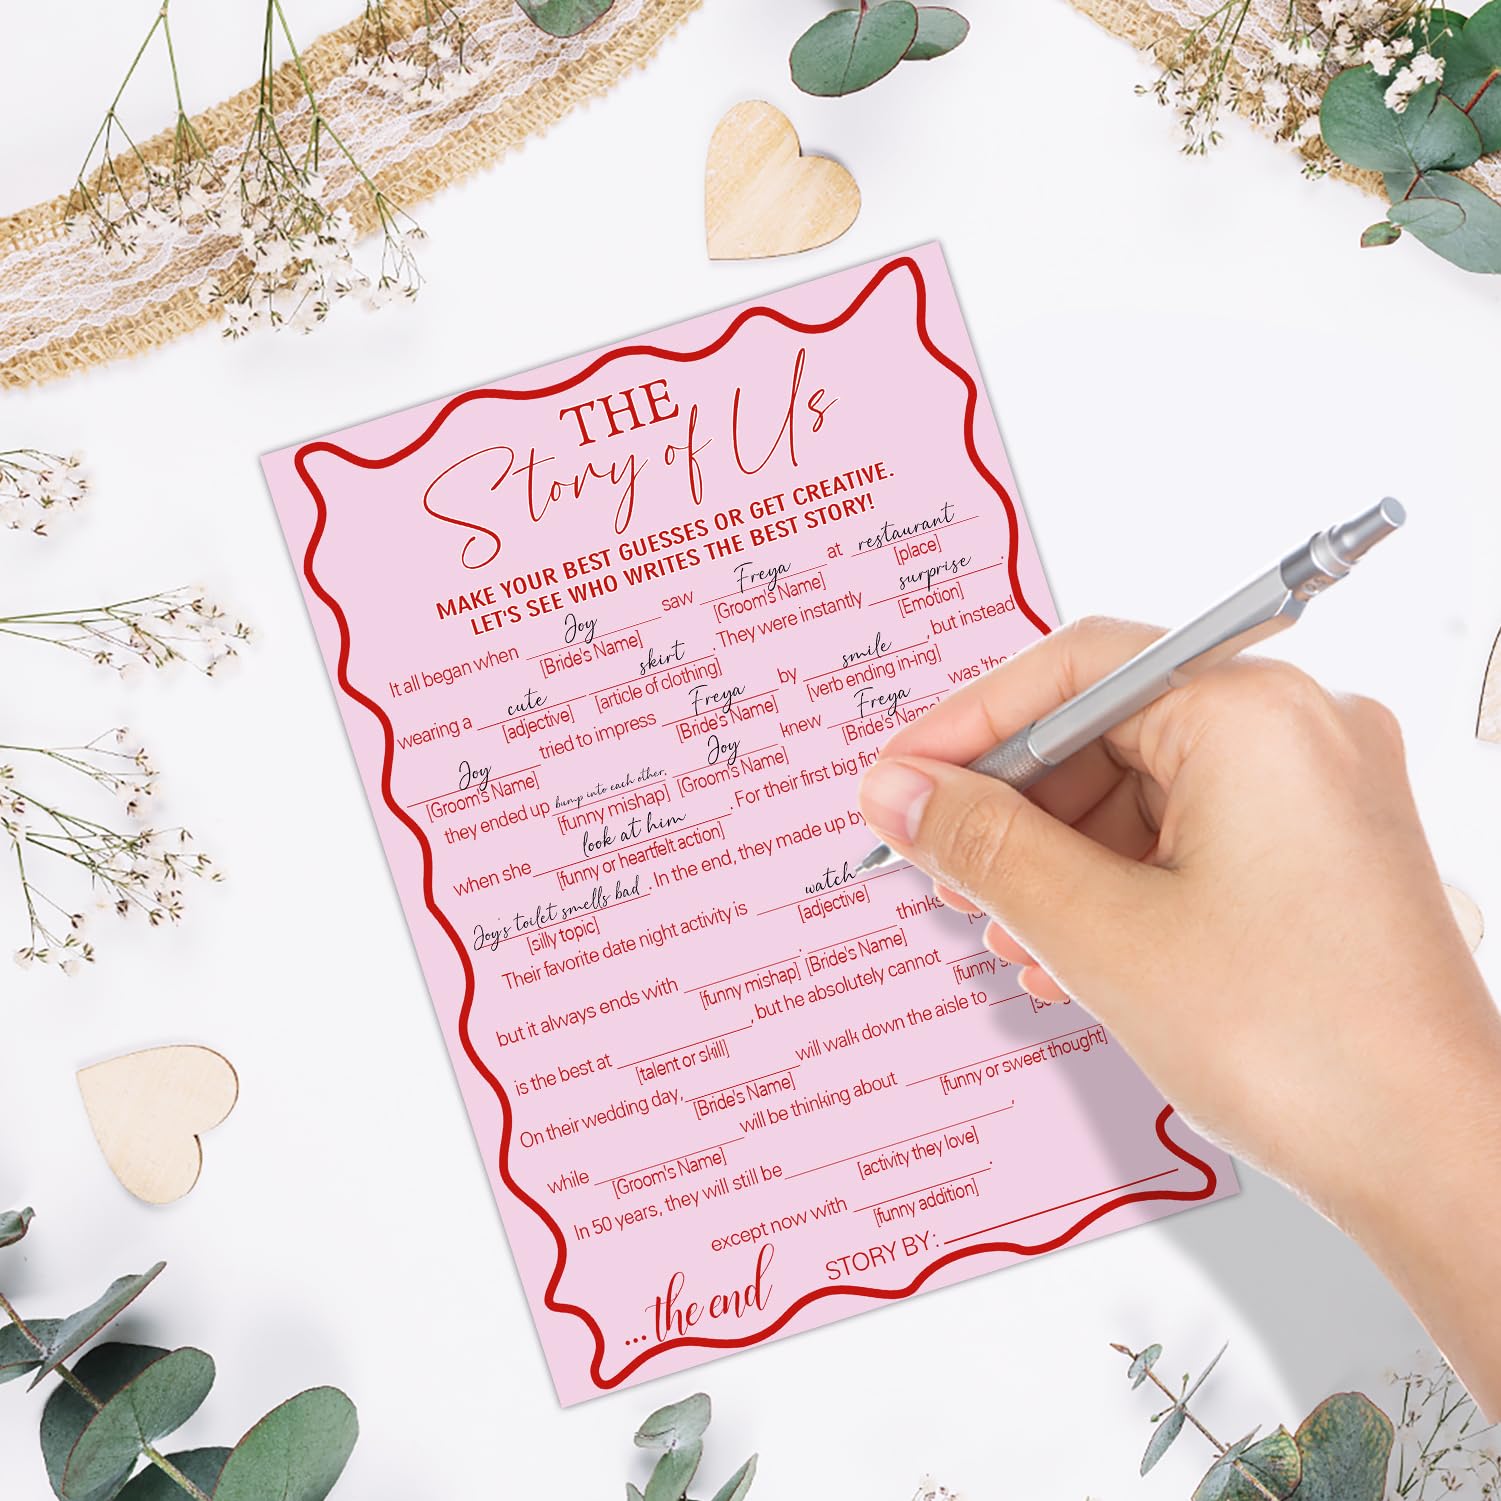 THE
Story of Us
MAKE YOUR BEST GUESSES OR GET CREATIVE.
LET'S SEE WHO WRITES THE BEST STORY!
It all began when Joy saw Freya at restaurant
[Bride's Name] [Groom's Name] [place]
wearing a cute skirt. They were instantly surprise.
[adjective] [article of clothing] [Emotion]
Joy tried to impress Freya by smile, but instead
[Groom's Name] [Bride's Name] [verb ending in-ing]
they ended up bump into each other. Joy knew Freya was 'the
[funny mishap] [Groom's Name] [Bride's Name]
when she look at him. For their first big
[funny or heartfelt action]
Joy's toilet smells bad. In the end, they made up by
[silly topic]
Their favorite date night activity is watch
[adjective]
but it always ends with . thinks
[funny mishap] [Bride's Name]
is the best at , but he absolutely cannot
[talent or skill] [funny
On their wedding day, will walk down the aisle to
[Bride's Name]
while will be thinking about ,
[Groom's Name] [funny or sweet thought]
In 50 years, they will still be
[activity they love]
except now with .
[funny addition]
...the end STORY BY: